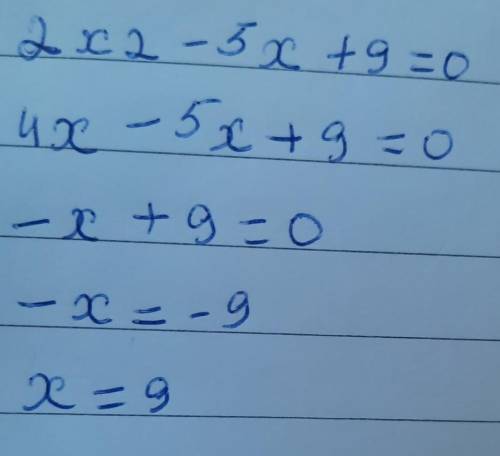 2x2 - 5x + 9 = 0
4x - 5x + 9 = 0
- x + 9 = 0
- x = - 9
x = 9